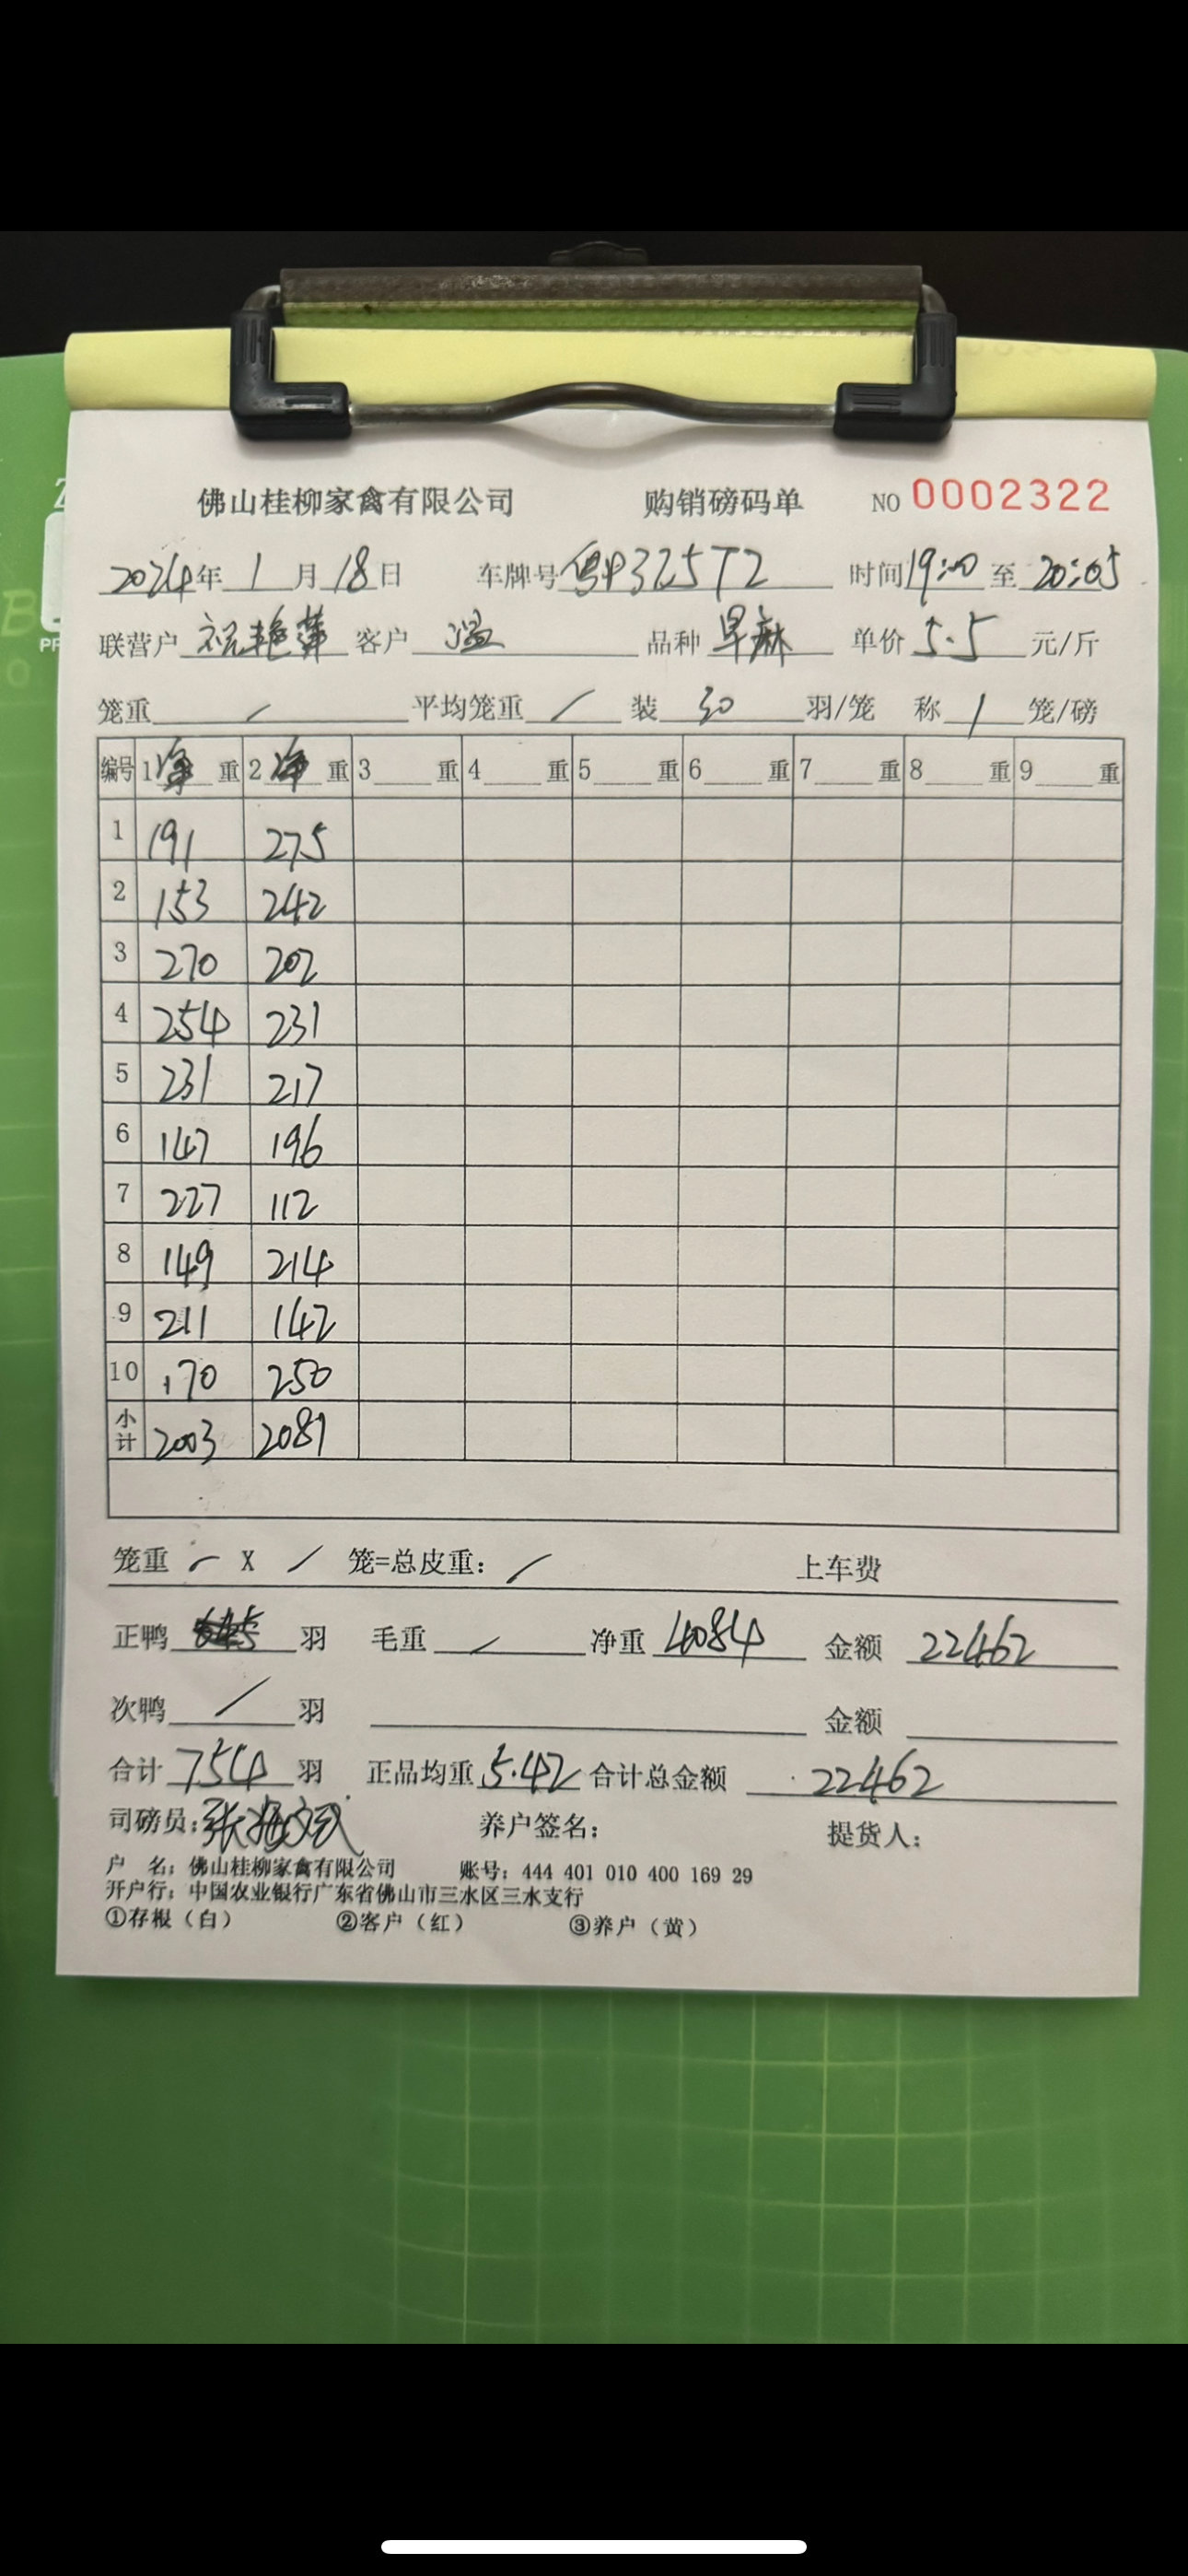 佛山桂柳家禽有限公司 购销磅码单 NO 0002322
2024年 1 月 18 日 车牌号 粤P325T2 时间 19:00 至 20:05
联营户 祝艳萍 客户 温 品种 早麻 单价 5.5 元/斤
笼重 / 平均笼重 / 装 30 羽/笼 称 1 笼/磅
编号 1 净 重 2 净 重 3 重 4 重 5 重 6 重 7 重 8 重 9 重
1 191 275
2 153 242
3 270 202
4 254 231
5 231 217
6 147 196
7 227 112
8 149 214
9 211 142
10 170 250
小计 2003 2081
笼重 / X / 笼=总皮重: / 上车费
正鸭 羽 毛重 / 净重 4084 金额 22462
次鸭 / 羽 金额
合计 754 羽 正品均重 5.42 合计总金额 22462
司磅员: 张 养户签名: 提货人:
户 名: 佛山桂柳家禽有限公司 账号: 444 401 010 400 169 29
开户行: 中国农业银行广东省佛山市三水区三水支行
①存根（白） ②客户（红） ③养户（黄）